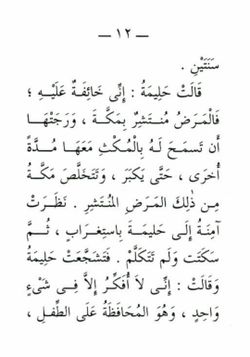 — ١٢ —
سَنَتَيْنِ .
قَالَتْ حَلِيمَةُ : إِنِّى خَائِفَةٌ عَلَيْهِ ؛
فَالْمَرَضُ مُنتَشِرٌ بِمَكَّةَ ، وَرَجَتْهَا
أَن تَسمَحَ لَهُ بِالْمُكْثِ مَعَهَا مُدَّةً
أُخرَى ، حَتَّى يَكبَرَ ، وَتَتَخَلَّصَ مَكَّةُ
مِن ذٰلِكَ المَرَضِ المُنتَشِرِ . نَظَرَتْ
آمِنَةُ إِلَى حَلِيمَةَ بِاستِغرَابٍ ، ثُمَّ
سَكَتَت وَلَم تَتَكَلَّمْ . فَتَشَجَّعَتْ حَلِيمَةُ
وَقَالَتْ : إِنِّى لَا أُفَكِّرُ إِلاَّ فِى شَىْءٍ
وَاحِدٍ ، وَهُوَ المُحَافَظَةُ عَلَى الطِّفلِ ،